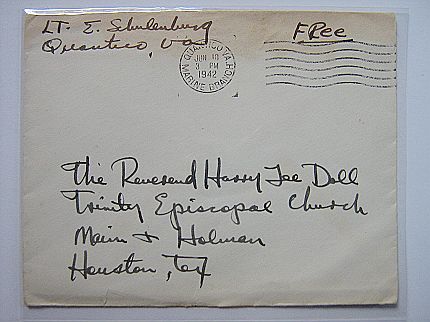 Lt. E. Schulenburg
Quantico, Va
Free
QUANTICO, VA.
JUN 10
3 PM
1942
MARINE BRANCH
The Reverend Harry Lee Doll
Trinity Episcopal Church
Main & Holman
Houston, Tex